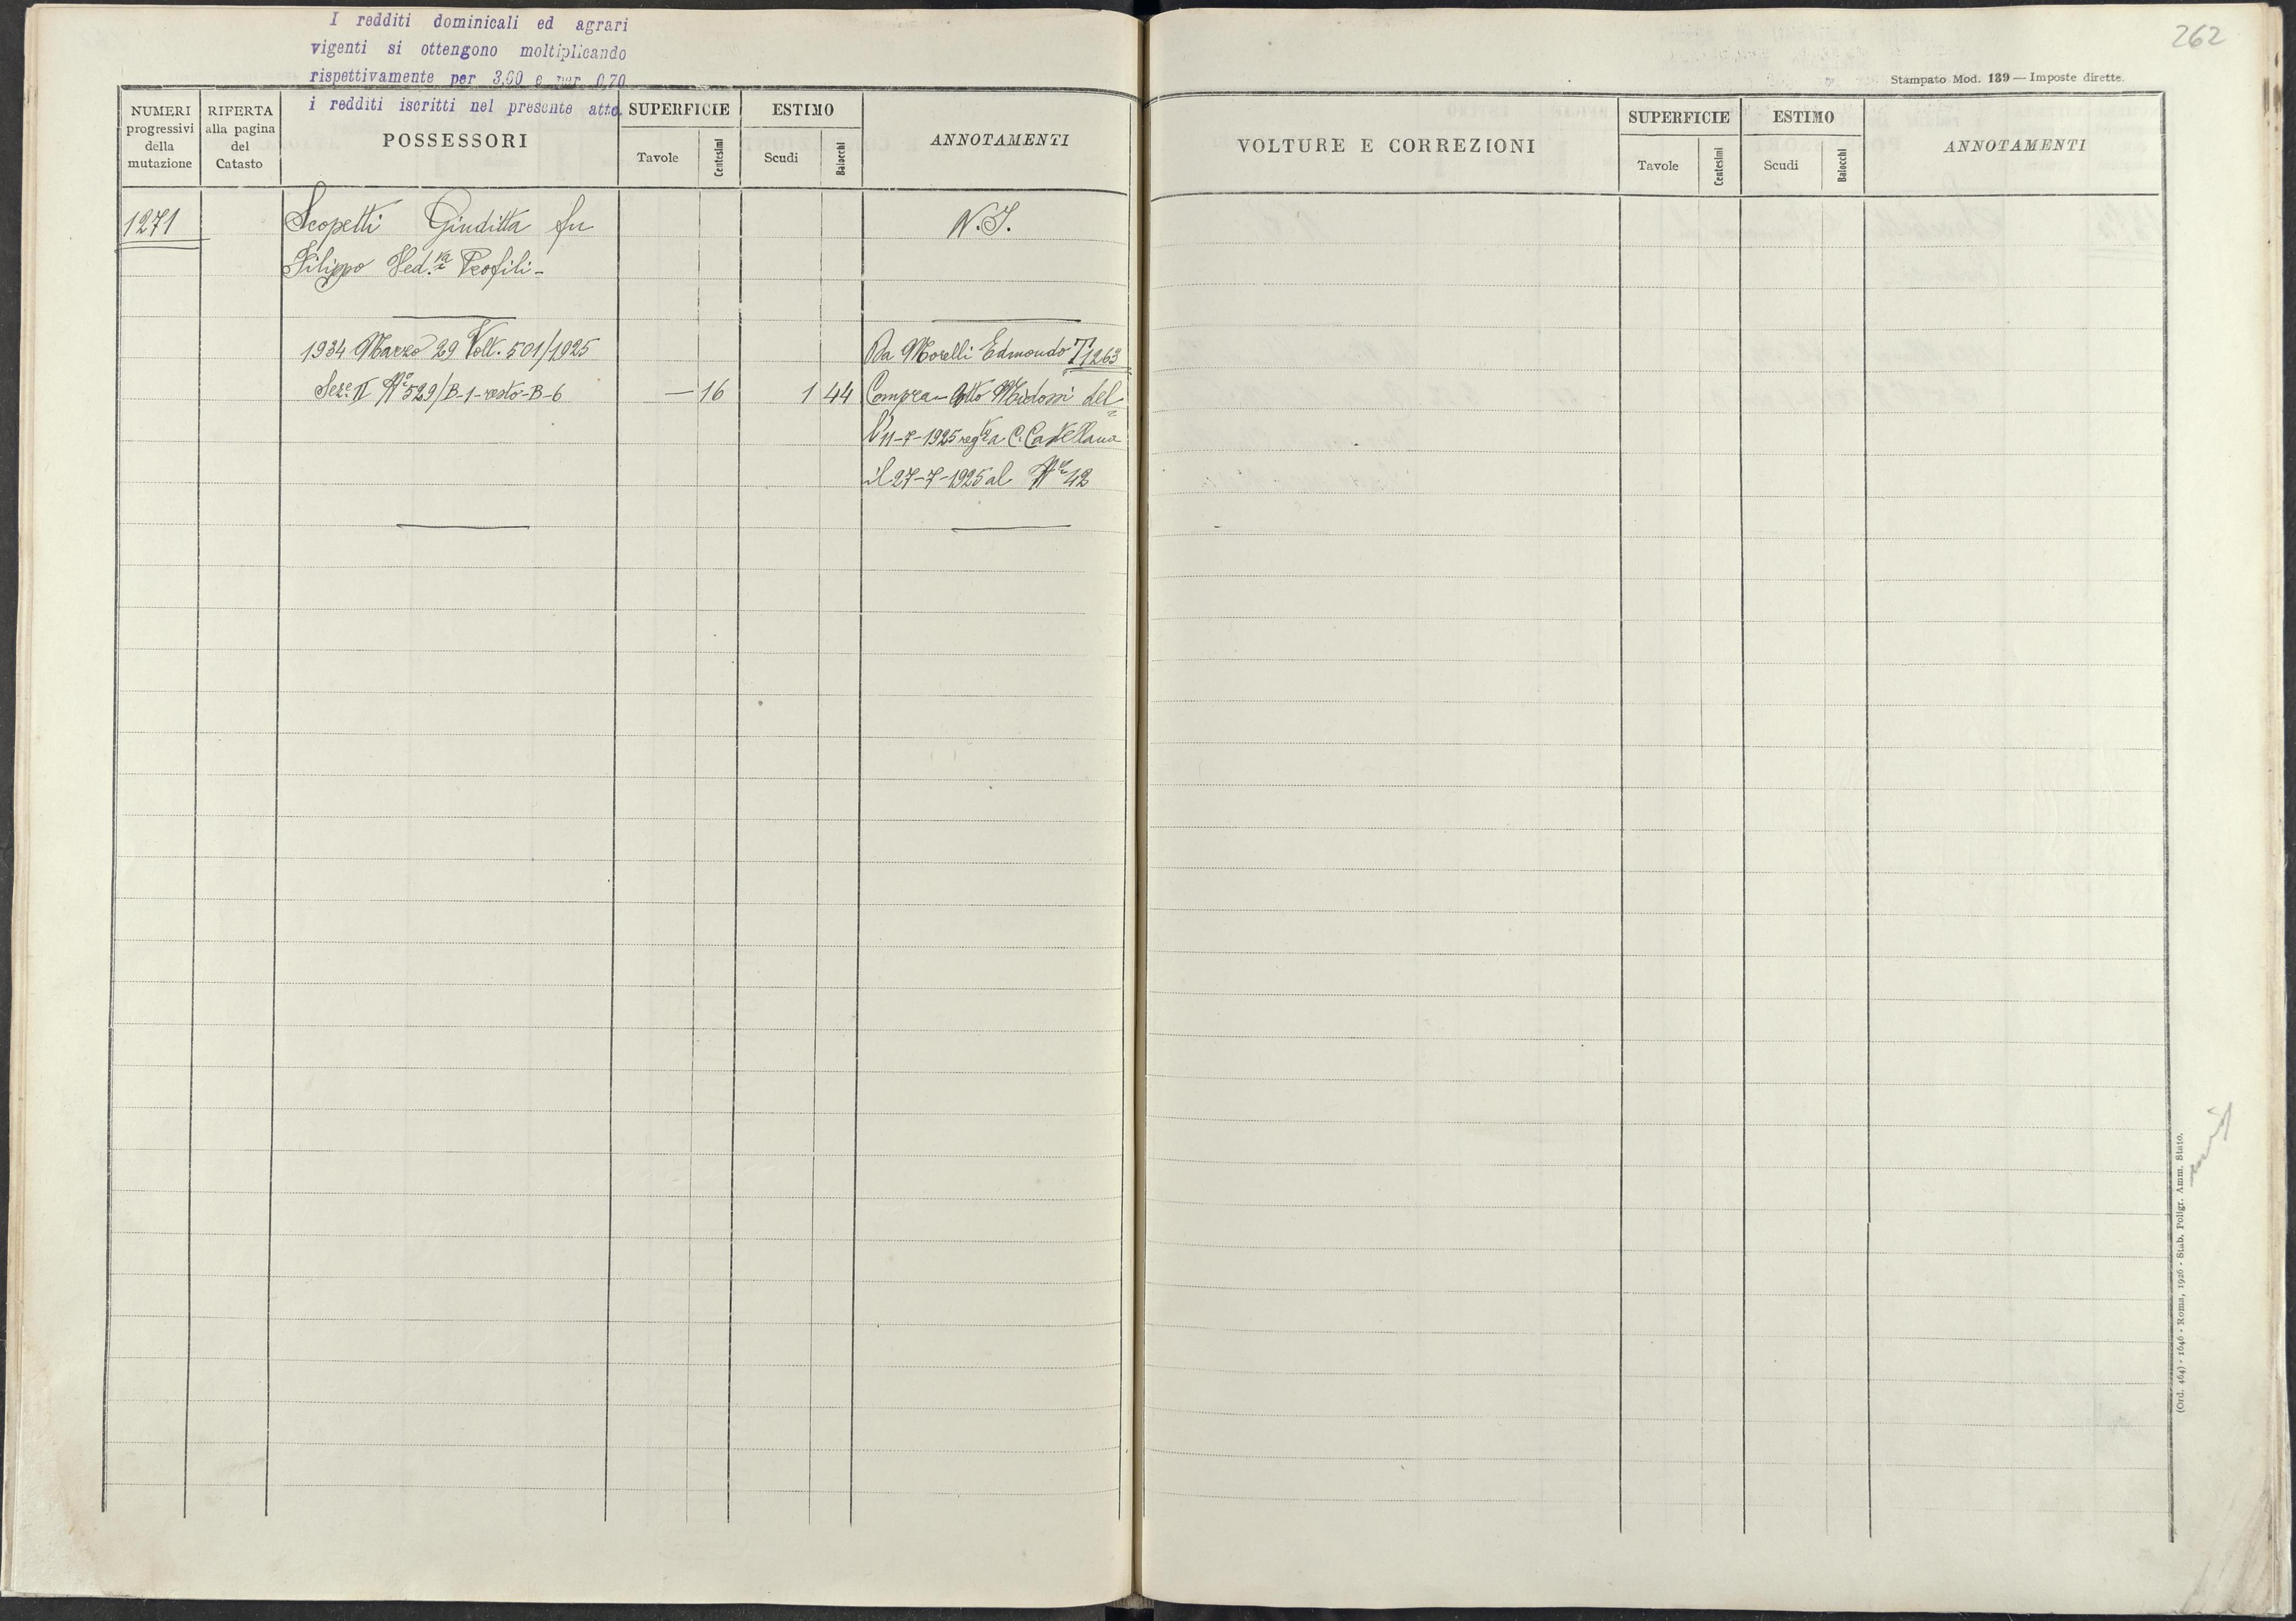 I redditi dominicali ed agrari
vigenti si ottengono moltiplicando
rispettivamente per 3,60 e per 0,70
i redditi iscritti nel presente atto.
262
Stampato Mod. 139 — Imposte dirette.
NUMERI
progressivi
della
mutazione
RIFERTA
alla pagina
del
Catasto
POSSESSORI
SUPERFICIE
Tavole
Centesimi
ESTIMO
Scudi
Baiocchi
ANNOTAMENTI
VOLTURE E CORREZIONI
SUPERFICIE
Tavole
Centesimi
ESTIMO
Scudi
Baiocchi
ANNOTAMENTI
1271 Scopetti Giuditta fu N.I.
Filippo Ved.va Teofili-
1934 Marzo 29 Volt. 501/1925 Da Morelli Edmondo T 1263
Sez.e II N° 529/B-1-resto-B-6 — 16 1 44 Compra - Atto Midossi del
l'11-7-1925 reg.to a C. Castellana
il 27-7-1925 al N° 42
(Ord. 464) - 1646 - Roma, 1926 - Stab. Poligr. Amm. Stato.